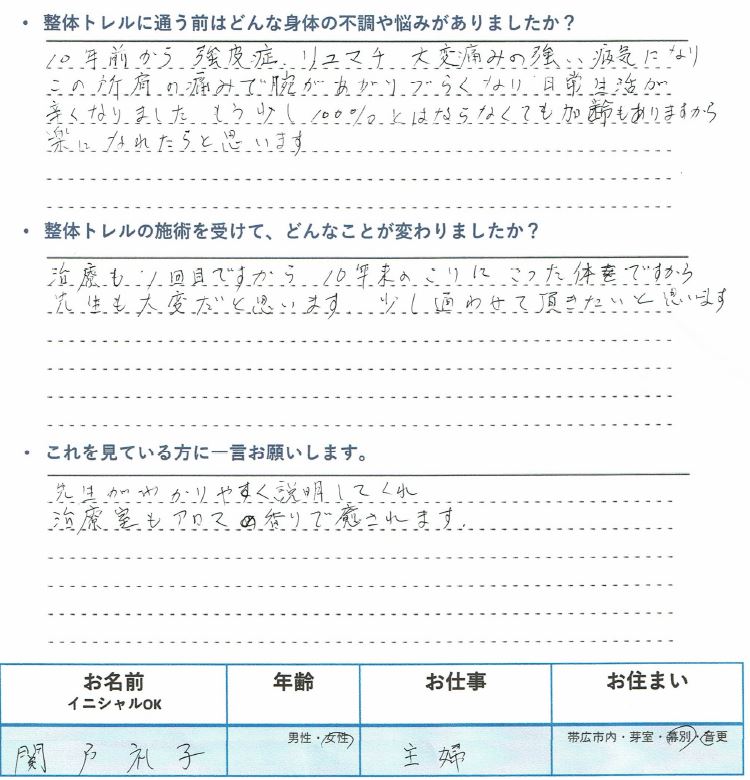 ・整体トレルに通う前はどんな身体の不調や悩みがありましたか？
10年前から 強皮症 リュマチ 大変痛みの強い 病気になり
この所肩の痛みで腕があがりづらくなり 日常生活が
辛くなりました もう少し 100%とはならなくても 加齢もありますから
楽になれたらと思います
・整体トレルの施術を受けて、どんなことが変わりましたか？
治療も 1回目ですから 10年来のこりにこった体ですから
先生も大変だと思います 少し通わせて頂きたいと思います
・これを見ている方に一言お願いします。
先生がわかりやすく説明してくれ
治療室もアロマの香りで癒されます.
お名前 年齢 お仕事 お住まい
イニシャルOK
男性・女性 帯広市内・芽室・幕別・音更
関戸礼子 主婦